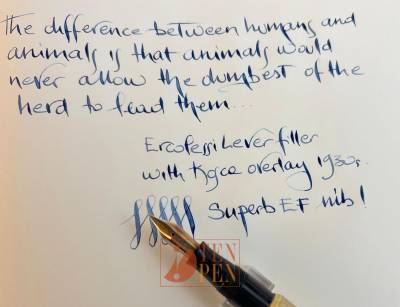 The difference between humans and
animals is that animals would
never allow the dumbest of the
herd to lead them...
Ercolessi Lever filler
with Kgca overlay 1930s.
Superb EF nib!
TEN
PEN